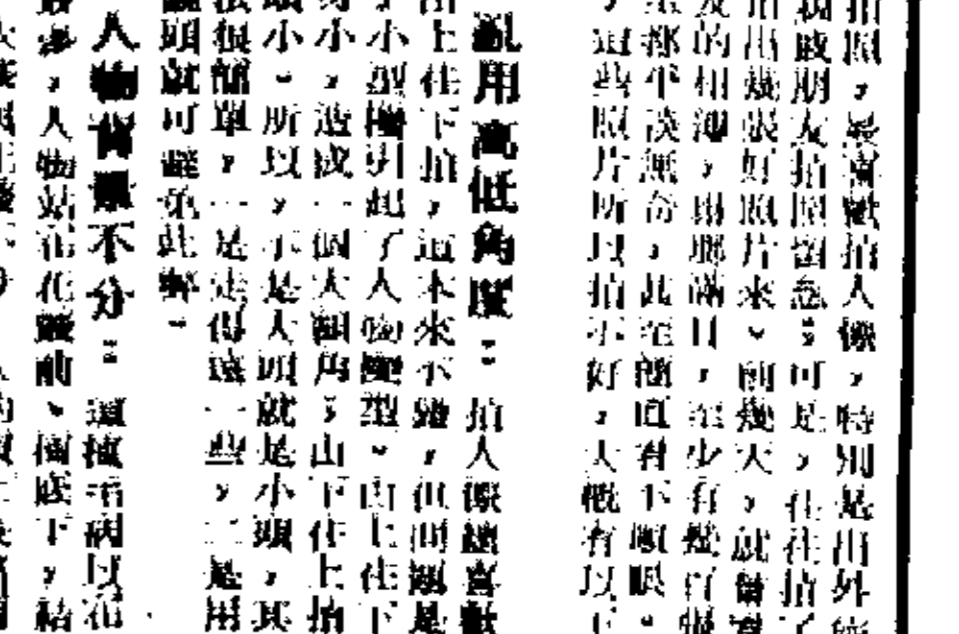 拍照，最喜歡拍人像，特別是出外
親戚朋友拍照留念；可是，往往拍了
拍出幾張好照片來。前幾天，就曾
的相簿，琳瑯滿目，至少有幾百張
都平淡無奇，甚至簡直看不順眼。
這些照片所以拍不好，大概有以下
亂用高低角度：拍人像總喜歡
上往下拍，這本來不錯，但問題是
小型機引起了人物變型。由山上往下
小，造成一個大額角；山下往上拍
頭小。所以，不是大頭就是小頭，其
很簡單，一是走得遠一些，二是用
鏡頭就可避免此弊。
人物背景不分：這種毛病以在
，人物站在花叢前、樹底下，結